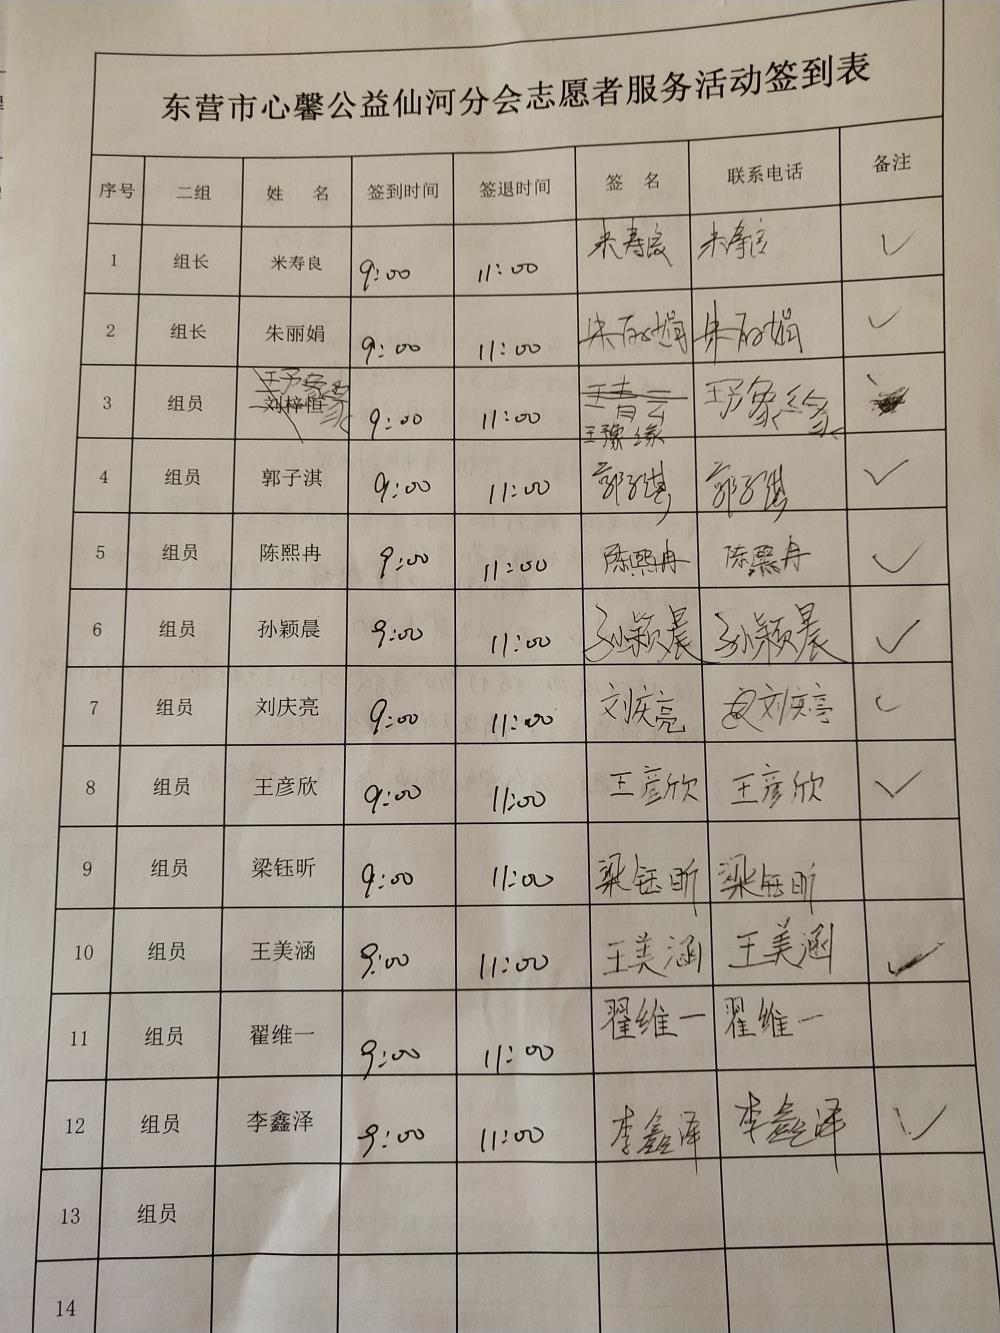 东营市心馨公益仙河分会志愿者服务活动签到表
序号 二组 姓 名 签到时间 签退时间 签 名 联系电话 备注
1 组长 米寿良 9:00 11:00 米寿良 米寿良 ✓
2 组长 朱丽娟 9:00 11:00 朱丽娟 朱丽娟 ✓
3 组员 刘梓恒 9:00 11:00 王豫缘
4 组员 郭子淇 9:00 11:00 郭子淇 郭子淇 ✓
5 组员 陈熙冉 9:00 11:00 陈熙冉 陈熙冉 ✓
6 组员 孙颖晨 9:00 11:00 孙颖晨 孙颖晨 ✓
7 组员 刘庆亮 9:00 11:00 刘庆亮 刘庆亮 ✓
8 组员 王彦欣 9:00 11:00 王彦欣 王彦欣 ✓
9 组员 梁钰昕 9:00 11:00 梁钰昕 梁钰昕
10 组员 王美涵 9:00 11:00 王美涵 王美涵 ✓
11 组员 翟维一 9:00 11:00 翟维一 翟维一
12 组员 李鑫泽 9:00 11:00 李鑫泽 李鑫泽 ✓
13 组员
14